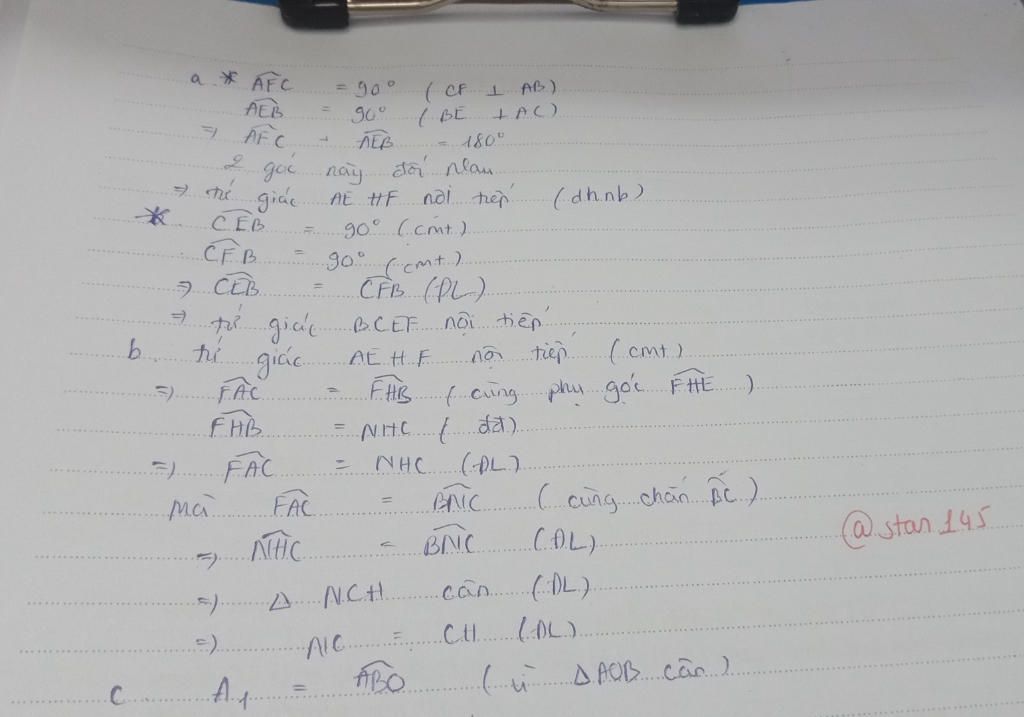 a. * AFC = 90° ( CF ⊥ AB)
AEB = 90° ( BE ⊥ AC)
⇒ AFC + AEB = 180°
2 góc này đối nhau
⇒ tứ giác AEHF nội tiếp (dhnb)
* CEB = 90° (cmt)
CFB = 90° (cmt)
⇒ CEB = CFB (DL)
⇒ tứ giác BCEF nội tiếp
b. tứ giác AEHF nội tiếp (cmt)
=) FAC = FHB ( cùng phụ góc FHE )
FHB = NHC ( đđ)
=) FAC = NHC (DL)
Mà FAC = BNC ( cùng chắn BC )
=) NHC = BNC (DL)
=) Δ NCH cân (DL)
=) NC = CH (DL)
c. A1 = ABO ( vì Δ AOB cân )
@stan145